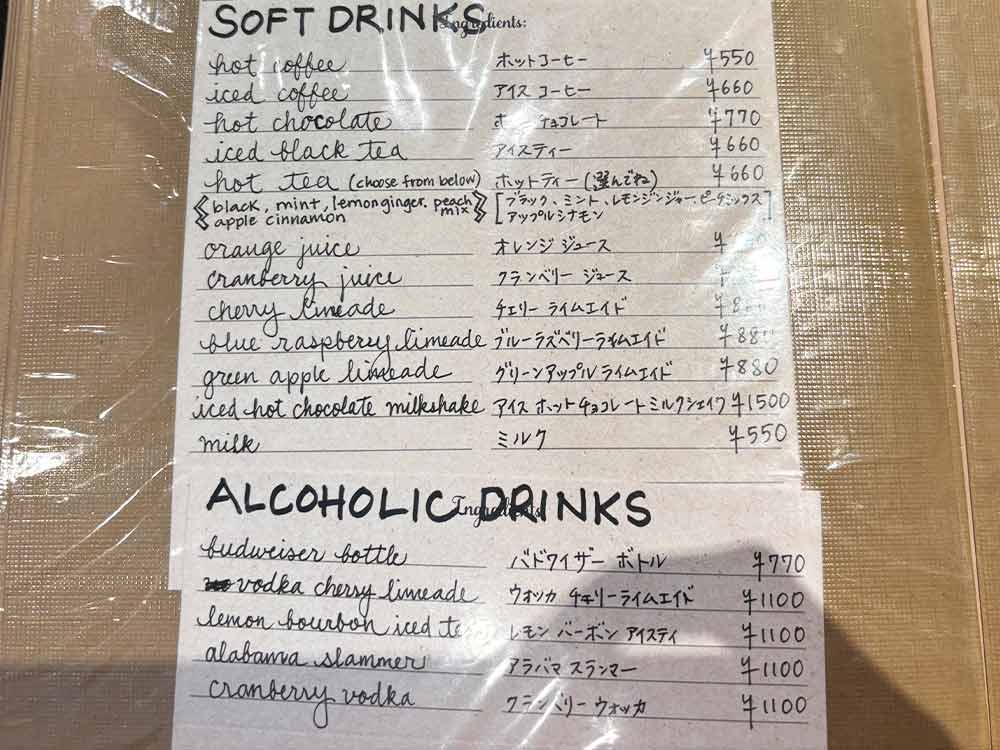 SOFT DRINKS Ingredients:
hot coffee ホットコーヒー ¥550
iced coffee アイスコーヒー ¥660
hot chocolate チョコレート ¥770
iced black tea アイスティー ¥660
hot tea (choose from below) ホットティー(選んでね) ¥660
black, mint, lemonginger, peach mix [ブラック、ミント、レモンジンジャー、ピーチミックス
apple cinnamon アップルシナモン]
orange juice オレンジ ジュース ¥
cranberry juice クランベリー ジュース
cherry limeade チェリー ライムエイド ¥
blue raspberry limeade ブルーラズベリーライムエイド ¥
green apple limeade グリーンアップル ライムエイド ¥880
iced hot chocolate milkshake アイス ホットチョコレートミルクシェイク ¥1500
milk ミルク ¥550
ALCOHOLIC DRINKS Ingredients
budweiser bottle バドワイザー ボトル ¥770
vodka cherry limeade ウォッカ チェリーライムエイド ¥1100
lemon bourbon iced レモン バーボン アイスティ ¥1100
alabama slammer アラバマ スランマー ¥1100
cranberry vodka クランベリー ウォッカ ¥1100